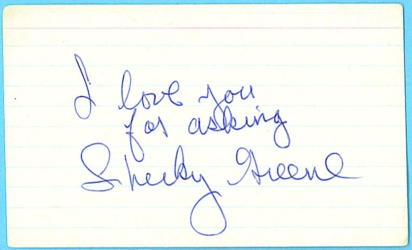 I love you
for asking
Shecky Greene